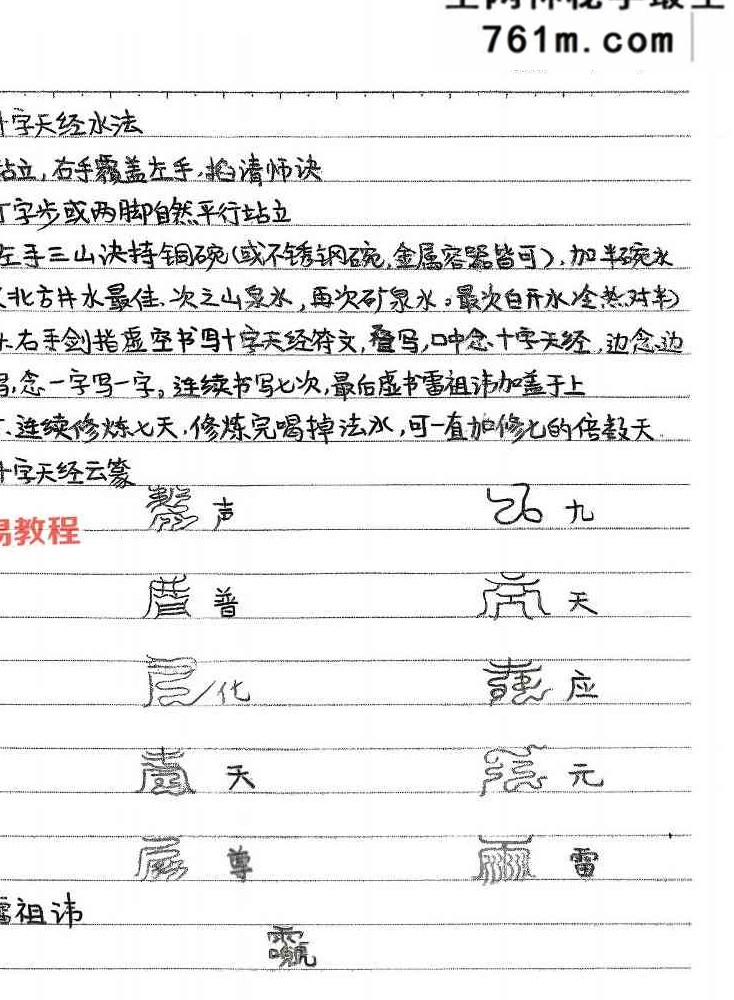 761m.com
十字天经水法
站立,右手覆盖左手,掐请师诀
丁字步或两脚自然平行站立
左手三山诀持铜碗(或不锈钢碗,金属容器皆可),加半碗水
(北方井水最佳、次之山泉水,再次矿泉水。最次白开水冷热对半)
右手剑指虚空书写十字天经符文,叠写,口中念十字天经,边念边
写,念一字写一字。连续书写七次,最后虚书雷祖讳加盖于上
、连续修炼七天,修炼完喝掉法水,可一直加修七的倍数天.
十字天经云篆
声 九
易教程
普 天
化 应
天 元
尊 雷
雷祖讳